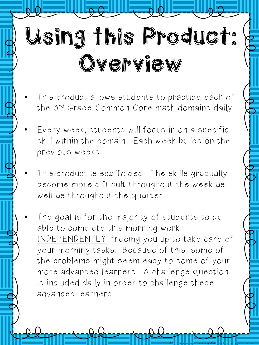 Using this Product:
Overview
This product allows students to practice each of
the 3rd Grade Common Core math domains daily.
Every week, students will focus in on a specific
skill within the domain. Each week builds on the
previous weeks.
This product is scaffolded. The skills gradually
become more difficult throughout the week as
well as throughout the quarter.
The goal is for the majority of students to be
able to complete this morning work
INDEPENDENTLY, freeing you up to take care of
your morning tasks. Because of this, some of
the problems might seem easy to some of your
more advanced learners. A challenge question
is included daily in order to challenge these
advanced learners.